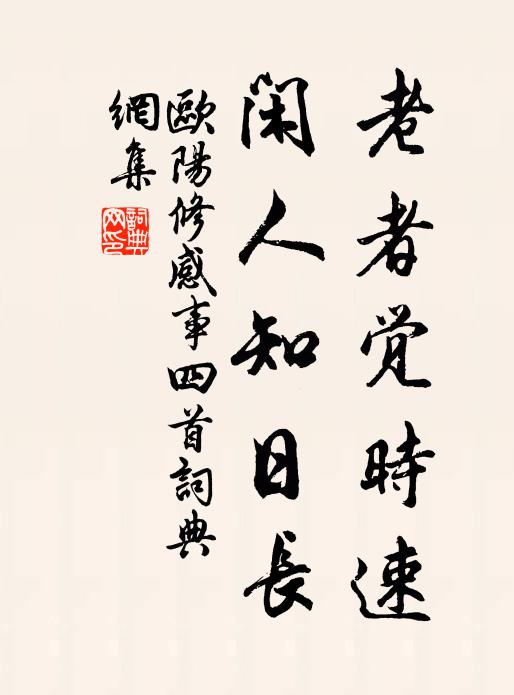 老者覚時速
閑人知日長
歐陽修感事四首詞典
網集
詞典
网印